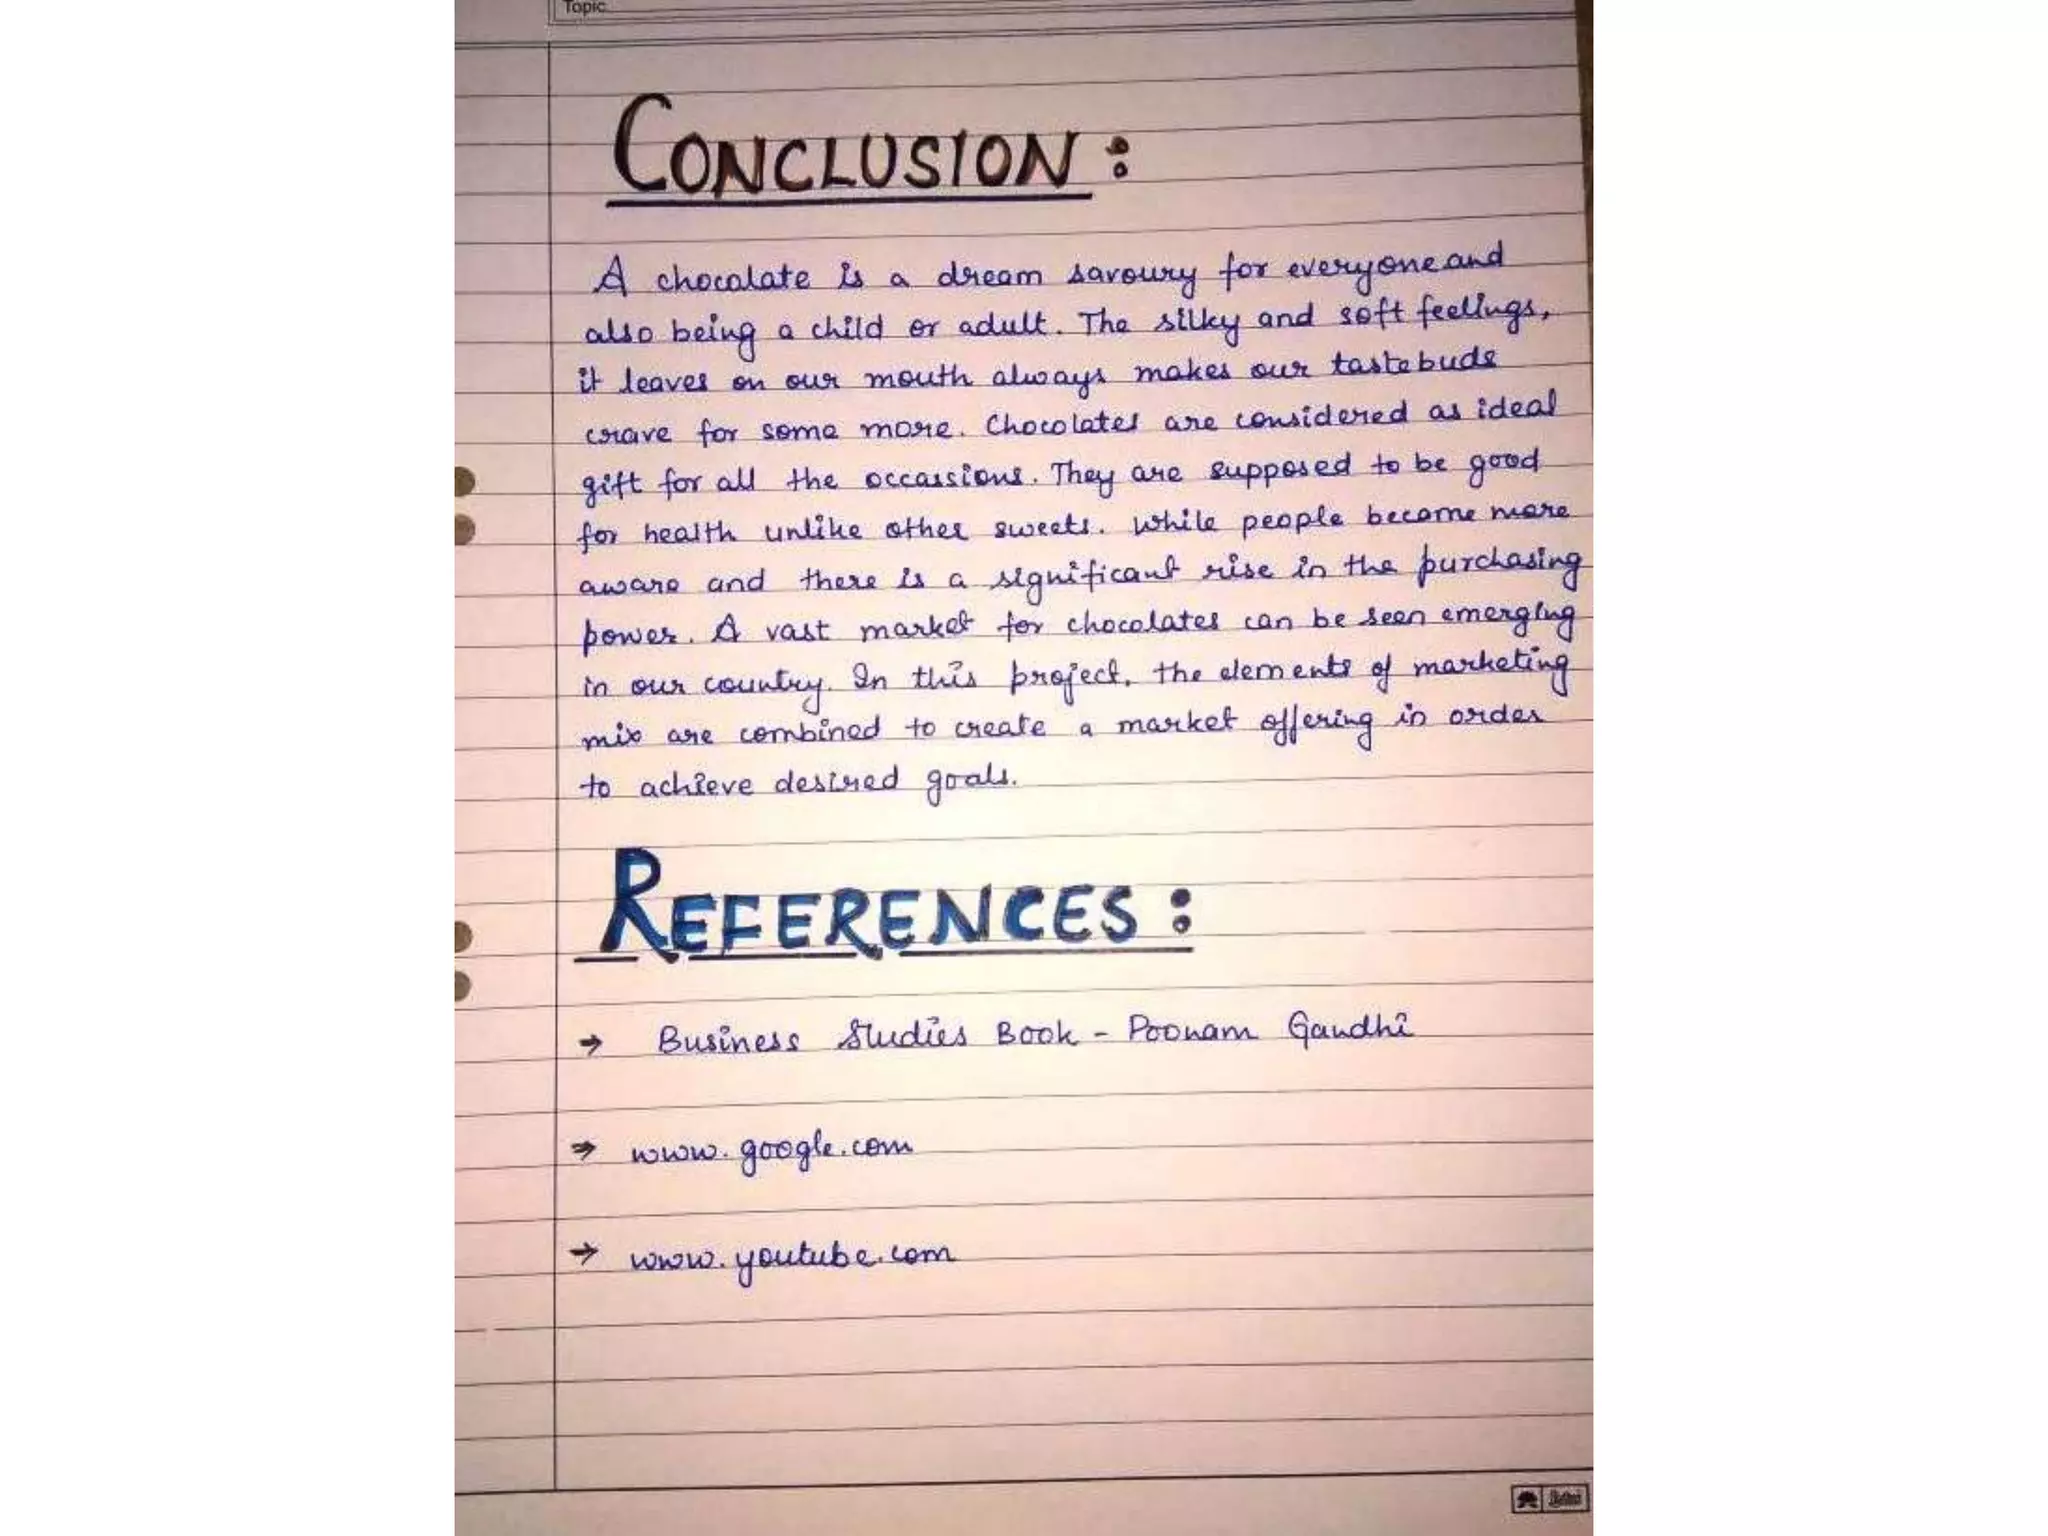 Topic
CONCLUSION :
A chocolate is a dream savoury for everyone and
also being a child or adult. The silky and soft feelings,
it leaves on our mouth always makes our taste buds
crave for some more. Chocolates are considered as ideal
gift for all the occassions. They are supposed to be good
for health unlike other sweets. While people become more
aware and there is a significant rise in the purchasing
power. A vast market for chocolates can be seen emerging
in our country. In this project, the elements of marketing
mix are combined to create a market offering in order
to achieve desired goals.
REFERENCES :
→ Business Studies Book - Poonam Gandhi
→ www.google.com
→ www.youtube.com